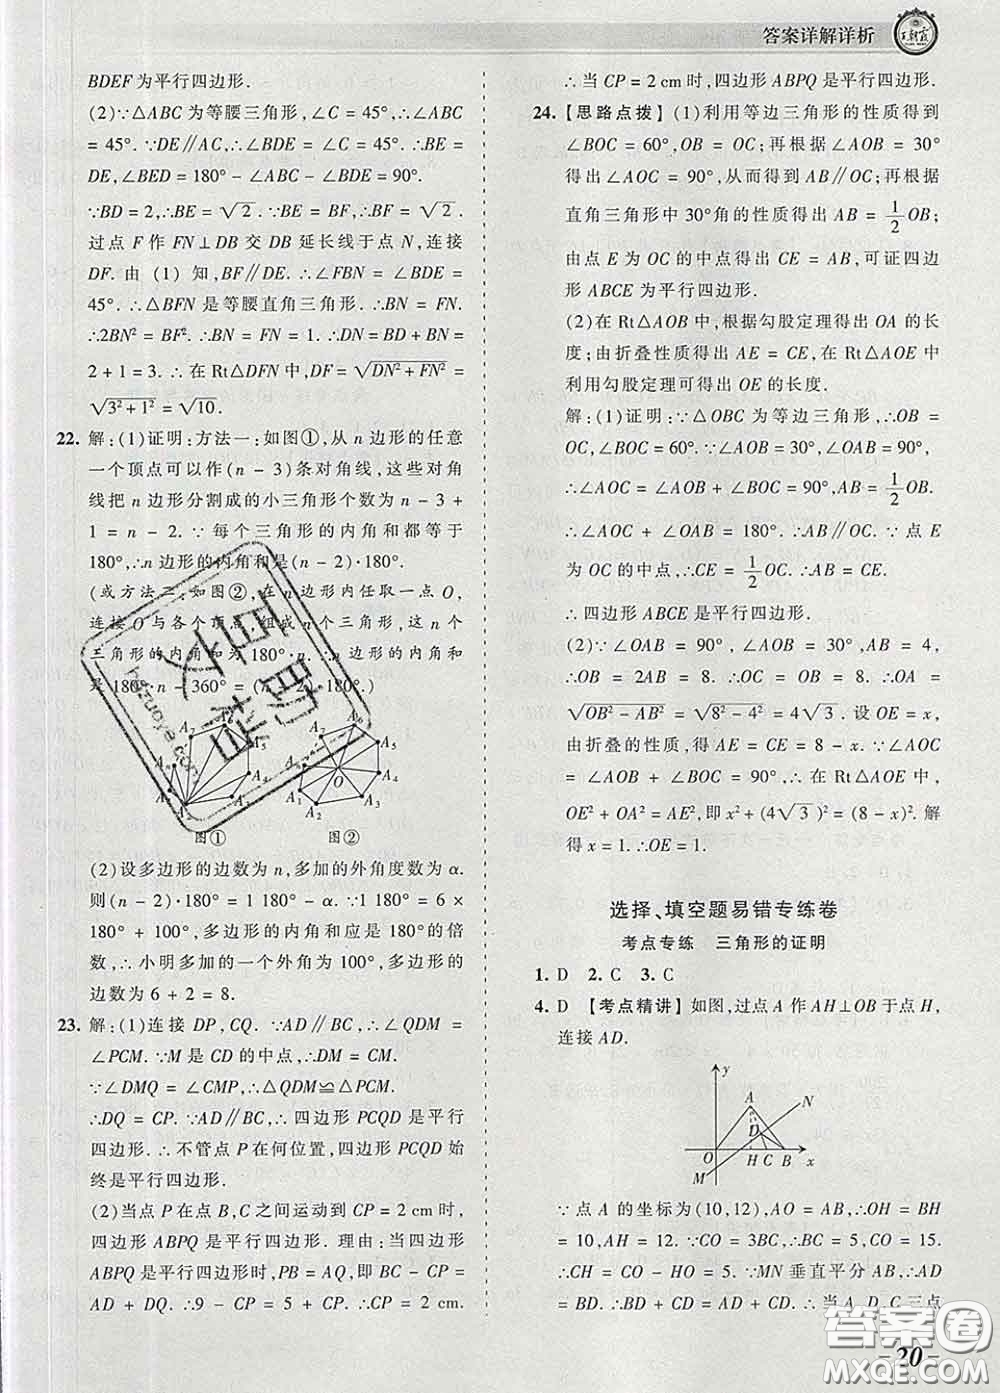 答案详解详析
王朝霞
BDEF为平行四边形.
(2)∵△ABC为等腰三角形,∠C = 45°,∴∠ABC
= 45°. ∵DE∥AC,∴∠BDE = ∠C = 45°. ∴BE =
DE,∠BED = 180° - ∠ABC - ∠BDE = 90°.
∵BD = 2,∴BE = √2. ∵BE = BF,∴BF = √2.
过点 F 作 FN⊥DB 交 DB 延长线于点 N,连接
DF. 由 (1) 知,BF∥DE. ∴∠FBN = ∠BDE =
45°. ∴△BFN 是等腰直角三角形. ∴BN = FN.
∴2BN² = BF². ∴BN = FN = 1. ∴DN = BD + BN =
2 + 1 = 3. ∴在 Rt△DFN 中,DF = √(DN² + FN²) =
√(3² + 1²) = √10.
22. 解:(1)证明:方法一:如图①,从 n 边形的任意
一个顶点可以作(n - 3)条对角线,这些对角
线把 n 边形分割成的小三角形个数为 n - 3 +
1 = n - 2. ∵ 每个三角形的内角和都等于
180°,∴n 边形的内角和是(n - 2)·180°.
(或方法二:如图②,在 n 边形内任取一点 O,
连接 O 与各个顶点,组成 n 个三角形,这 n 个
三角形的内角和为 180°·n. ∴n 边形的内角和
是 180°·n - 360° = (n - 2)·180°.)
图① 图②
(2)设多边形的边数为 n,多加的外角度数为 α.
则(n - 2)·180° = 1180° - α. ∵1180° = 6 ×
180° + 100°,多边形的内角和应是 180°的倍
数,∴小明多加的一个外角为 100°,多边形的
边数为 6 + 2 = 8.
23. 解:(1)连接 DP,CQ. ∵AD∥BC,∴∠QDM =
∠PCM. ∵M 是 CD 的中点,∴DM = CM.
∵∠DMQ = ∠CMP,∴△QDM≌△PCM.
∴DQ = CP. ∵AD∥BC,∴四边形 PCQD 是平行
四边形. ∴不管点 P 在何位置,四边形 PCQD 始
终是平行四边形.
(2)当点 P 在点 B,C 之间运动到 CP = 2 cm 时,
四边形 ABPQ 是平行四边形. 理由:当四边形
ABPQ 是平行四边形时,PB = AQ,即 BC - CP =
AD + DQ. ∴9 - CP = 5 + CP. ∴CP = 2 cm.
∴当 CP = 2 cm 时,四边形 ABPQ 是平行四边形.
24. 【思路点拨】(1)利用等边三角形的性质得到
∠BOC = 60°,OB = OC;再根据∠AOB = 30°
得出∠AOC = 90°,从而得到 AB∥OC;再根据
直角三角形中 30°角的性质得出 AB = 1/2 OB;
由点 E 为 OC 的中点得出 CE = AB,可证四边
形 ABCE 为平行四边形.
(2)在 Rt△AOB 中,根据勾股定理得出 OA 的长
度;由折叠性质得出 AE = CE,在 Rt△AOE 中
利用勾股定理可得出 OE 的长度.
解:(1)证明:∵△OBC 为等边三角形,∴OB =
OC,∠BOC = 60°. ∵∠AOB = 30°,∠OAB = 90°,
∴∠AOC = ∠AOB + ∠BOC = 90°,AB = 1/2 OB.
∴∠AOC + ∠OAB = 180°. ∴AB∥OC. ∵点 E
为 OC 的中点,∴CE = 1/2 OC. ∴AB = CE.
∴四边形 ABCE 是平行四边形.
(2)∵∠OAB = 90°,∠AOB = 30°,AB = 4,
∴OB = 2AB = 8. ∴OC = OB = 8. ∴OA =
√(OB² - AB²) = √(8² - 4²) = 4√3. 设 OE = x,
由折叠的性质,得 AE = CE = 8 - x. ∵∠AOC
= ∠AOB + ∠BOC = 90°,∴在 Rt△AOE 中,
OE² + OA² = AE²,即 x² + (4√3)² = (8 - x)². 解
得 x = 1. ∴OE = 1.
选择、填空题易错专练卷
考点专练 三角形的证明
1. D 2. C 3. C
4. D 【考点精讲】如图,过点 A 作 AH⊥OB 于点 H,
连接 AD.
y
A N
D
O H C B x
M
∵点 A 的坐标为(10,12),AO = AB,∴OH = BH
= 10,AH = 12. ∵CO = 3BC,∴BC = 5,CO = 15.
∴CH = CO - HO = 5. ∵MN 垂直平分 AB,∴AD
= BD. ∴BD + CD = AD + CD. ∴当 A,D,C 三点
- 20 -
答案圈
MXQE.COM